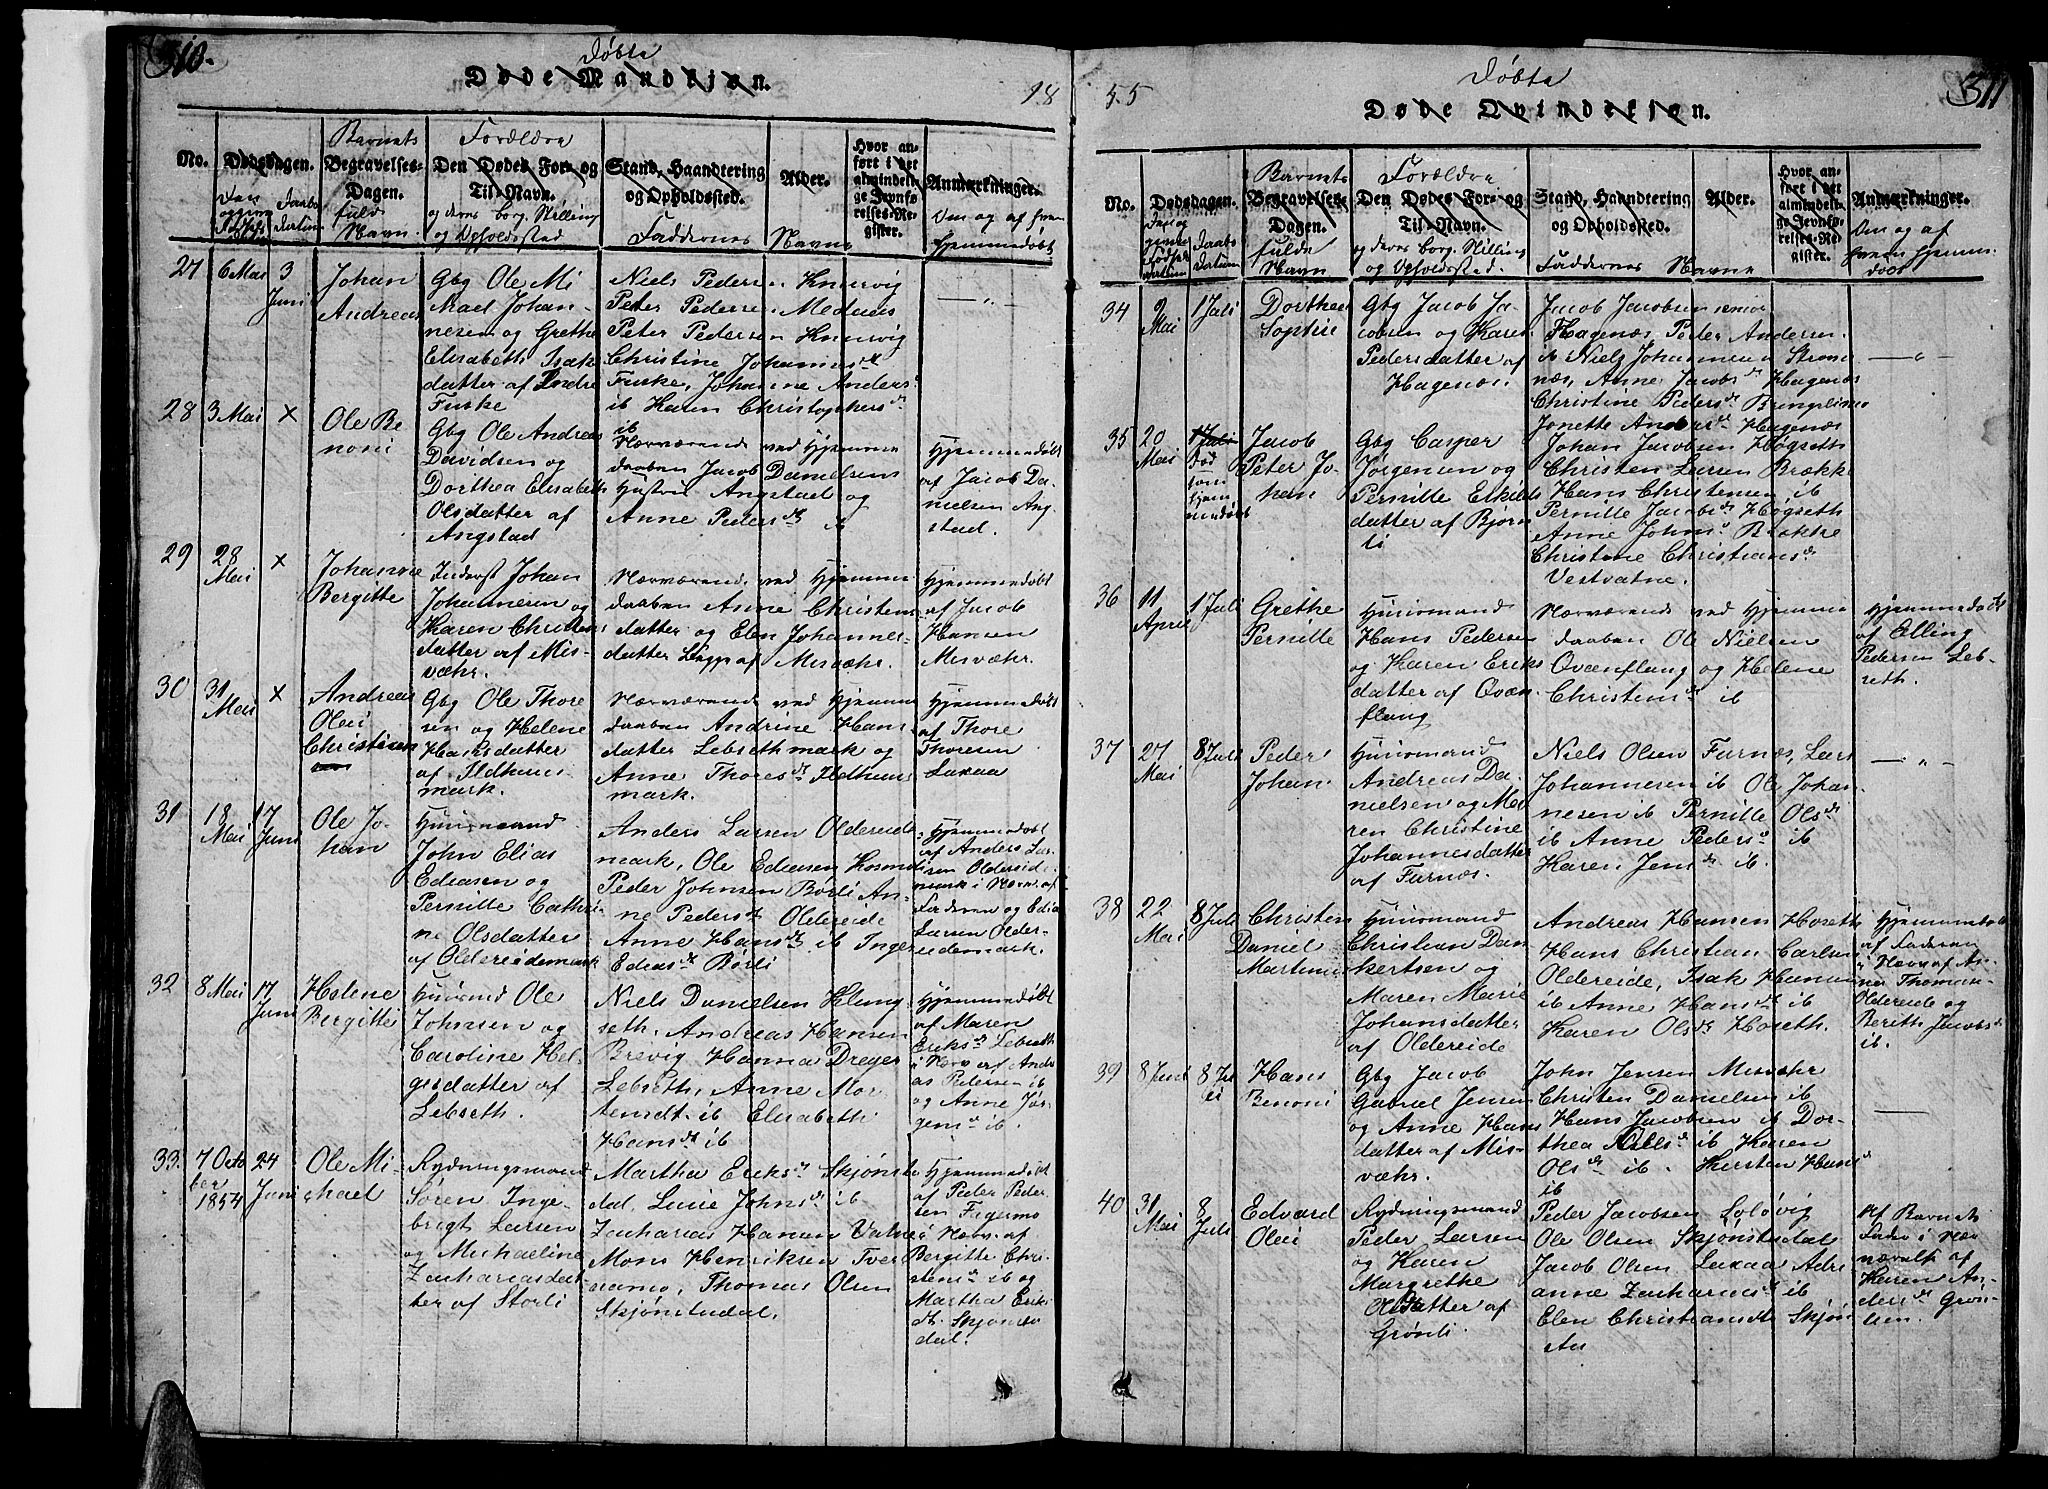 310.
Døbte
Døde Mandkjøn.
18
No.
Dødsdagen.
Barnets
Begravelses-
Dagen.
fulde
Navn.
Forældre
Den Dødes For- og
Til-Navn.
og deres borg. Stilling
og Opholdssted
Stand, Haandtering
og Opholdssted.
Faddernes
Alder.
Navne
Hvor an-
ført i det
almindeli-
ge Jevnfø-
relses-Re-
gister.
Anmærkninger.
Om og af hvem
hjemmedøbt
27
6 Mai
3
Juni
Johan
Andreas
Gbg Ole Mi
kael Johan-
nesen og Grethe
Elisabeth Isak
datter af Indre
Fuske
Niels Pedersen Knervig
Peder Pedersen Medaas
Peter Pedersen Knervig
Christine Johannesdt
Fuske, Johanne Anders
ib Karen Christophersdt
ib
— " —
28
3 Mai
x
Ole Be
noni
Gbg Ole Andreas
Davidsen og
Dorthea Elisabeth
Olsdatter af
Angstad
Nærværende ved Hjemme
daaben Jacob Danielsens
Hustru Angstad og
Anne Pedersdt ib
Hjemmedøbt
af Jacob Da-
nielsen Ang
stad.
29
28
Mai
x
Johanne
Bergitte
Inderst Johan
Johannesen og
Karen Christens
datter af Mis-
væhr.
Nærværende ved Hjemme
daaben Anne Christens
datter og Elen Johannes-
datter Lapp af Misvæhr.
Hjemmedøbt
af Jacob
Hansen
Misvæhr.
30
31
Mai
x
Andreas
Olai
Christian
Gbg Ole Thore
sen og Helene
Hansdatter
af Ildhus
mark.
Nærværende ved Hjemme
daaben Andrine Hans
datter Lebsethmark og
Anne Thoresdt Ildhus
mark.
Hjemmedøbt
af Thore
Thoresen
Laxaa
31
18
Mai
17
Juni
Ole Jo-
han
Huusmand
John Elias
Ediasen og
Pernille Cathri
ne Olsdatter
af Oldereidemark
Anders Larsen Oldereide
mark, Ole Ediasen Kosmo
Peder Johnsen Børli An-
ne Pedersdt Oldereide
Anne Hansdt ib Inger
Ediasdt Børli
Hjemmedøbt
af Anders Lar
sen Oldereide
mark i Nærv. af
Faderen og Edias
Larsen Older-
eidemark.
32
8 Mai
17
Juni
Helene
Bergitte
Huusmd Ole
Johnsen og
Caroline Hel-
gesdatter af
Lebseth.
Niels Danielsen Klung
seth, Andreas Hansen
Brevig Hannas Dreyer
Lebseth, Anne Mor
tensdt. ib Elisabeth
Hansdt ib
Hjemmedøbt
af Maren
Eriksdt Lebseth
i Nærv af Andre
as Pedersen ib
og Anne Jør-
gensdt ib.
33.
7 Octo
ber
1854
24
Juni
Ole Mi-
chael
Rydningsmand
Søren Inge-
brigt Larsen
og Michaeline
Zachariasdat
ter af Storli
Martha Eriksdt Skjønsta
dal, Lucie Johnsdt ib
Zacharias Hansen Vatne
Mons Henriksen Tver
aamo, Thomas Olsen
Skjønstadal.
Hjemmedøbt
af Peder Peder
sen Fagermo
i Nærv. af
Bergitte Chri
stensdt ib og
Martha Eriks
dt. Skjønsta
dal.
311
Døbte
55
Døde Qvindekjøn.
No.
Dødsdagen.
Daabs
datum
Barnets
Begravelses-
Dagen.
fulde
Navn
Forældre
Den Dødes For- og
Til-Navn.
og deres borg. Stilling
og Opholdssted.
Stand, Haandtering
og Opholdssted.
Faddernes
Alder.
Navne
Hvor an-
ført i det
almindeli-
ge Jevnfø-
relses-Re-
gister.
Anmærkninger.
Om og af
hvem hjemme
døbt
34
9
Mai
1 Juli
Dorthea
Sophie
Gbg Jacob Ja-
cobsen og Karen
Pedersdatter af
Hagenæs.
Jacob Jacobsen senior
Hagenæs Peder Andersen
ib Niels Johannesen Strøm
næs, Anne Jacobsdt Hagenæs
Christine Pedersdt Bringslimo
Jonette Andersdt Hagenæs
— " —
35
20
Mai
1 Juli
Død
som
hjem
medøbt
Jacob
Peter Jo-
han
Gbg Casper
Jørgensen og
Pernille Eskilds
datter af Bjørn
li
Johan Jacobsen Høgseth
Christen Larsen Brække
Hans Christensen ib
Pernille Jacobsdt Høgseth
Anne Johnsd Brække
Christine Christiansdt
Vestvatne.
36
11
April
1 Juli
Grethe
Pernille
Huusmand
Hans Pedersen
og Karen Eriks
datter af Qvæn
flaug
Nærværende ved Hjemme
daaben Ole Nielsen
Qvænflaug og Helene
Christensdt ib
Hjemmedøbt
af Elling
Pedersen Leb-
seth.
37
27
Mai
8 Juli
Peder
Johan
Huusmand
Andreas Da-
nielsen og Ma-
ren Christine
Johannesdatter
af Furnæs.
Niels Olsen Furnæs, Lars
Johannesen ib Ole Johan-
nesen ib Pernille Olsdt
ib Anne Pedersd ib
Karen Jensdt ib.
— " —
38
22
Mai
8 Juli
Christen
Daniel
Martinus
Huusmand
Christian Dan
kertsen og
Maren Marie
Johansdatter
af Oldereide
Andreas Hansen Hoseth
Hans Christian Carlsen
Oldereide, Isak Hansen
ib Anne Hansdt ib
Karen Olsdt Hoseth.
Hjemmedøbt
af Faderen
i Nærv af An-
ne Thomasd
Oldereide og
Berith Jacobsdt
ib.
39
8 Juni
8 Ju
li
Hans
Benoni
Gbg Jacob
Gabriel Jensen
og Anne Hans
datter af Mis-
væhr.
John Jensen Misvæhr
Christen Danielsen ib
Hans Jacobsen ib Dor-
thea Nielsdt ib Karen
Olsdt ib. Kirsten Hansdt
ib
40
31
Mai
8
Juli
Edvard
Olai
Rydningsmand
Peder Larsen
og Karen
Margrethe
Olsdatter af
Grønli.
Peder Jacobsen Soløvig
Ole Olsen Skjønstadal
Jacob Olsen Laxaa Adri
anne Zachariasdt ib
Elen Christiansdt Skjøn
Af Barnets
Fader i Nær
værelse af
Karen An-
dersdt Grøn-